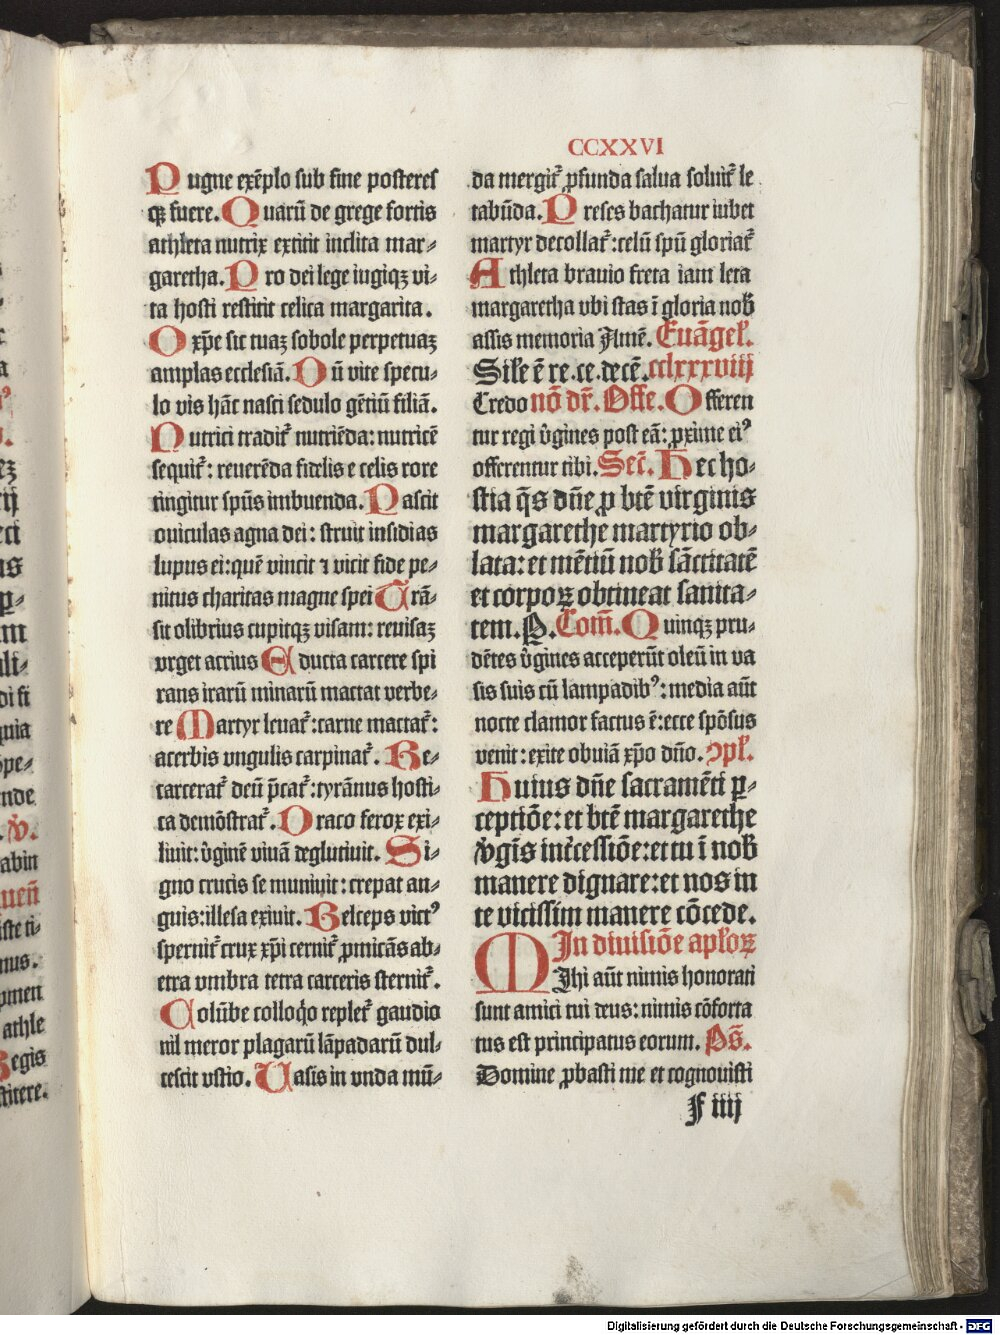 CCXXVI
Pugne exēplo sub fine posteres
qꝫ fuere. Quarū de grege fortis
athleta nutrix extitit inclita mar⸗
garetha. Pro dei lege iugiqꝫ vi⸗
ta hosti restitit celica margarita.
O xp̄e sit tuaꝫ sobole perpetuaꝫ
amplas ecclesiā. Dū vite specu⸗
lo vis hāc nasci sedulo gētiū filiā.
Nutrici tradit᷑ nutriēda: nutricē
sequit᷑: reuerēda fidelis e celis rore
tingitur spūs imbuenda. Pascit
ouiculas agna dei: struit insidias
lupus ei: quē vincit ⁊ vicit fide pe⸗
nitus charitas magne spei Trā⸗
sit olibrius cupitqꝫ visam: reuisaꝫ
vrget acrius Educta carcere spi
rans irarū minarū mactat verbe⸗
re Martyr leuat᷑: carne mactat᷑:
acerbis vngulis carpinat᷑. Re⸗
carcerat᷑ deū p̄cat᷑: tyrānus hosti⸗
ca demōstrat᷑. Draco ferox exi⸗
liuit: v̓ginē viuā deglutiuit. Si⸗
gno crucis se muniuit: crepat an⸗
guis: illesa exiuit. Belceps vict⁹
spernit᷑ crux xp̄i cernit᷑ ꝓmicās ab⸗
etra vmbra tetra carceris sternit᷑.
Colūbe colloq̇o replet᷑ gaudio
nil meror plagarū lāpadarū dul⸗
cescit vstio. Vasis in vnda mū⸗
da mergit᷑ ꝓfunda salua soluit᷑ le
tabūda. Preses bachatur iubet
martyr decollat᷑: celū spū gloriat᷑
Athleta brauio freta iam leta
margaretha vbi stas ī gloria nob̄
assis memoria Amē. Euāgel̄.
Sil̄e ē re. ce. decē. cclxxxviij
Credo nō dr̄. Offe. Offeren
tur regi v̓gines post eā: ꝓxime ei⁹
offerentur tibi. Sec̄. Hec ho⸗
stia q̄s dn̄e ꝓ btē virginis
margarethe martyrio ob⸗
lata: et mētiū nob̄ sāctitatē
et corpoꝝ obtineat sanita⸗
tem. P. Com̄. Quinqꝫ pru⸗
dētes v̓gines acceperūt oleū in va
sis suis cū lampadib⁹: media aūt
nocte clamor factus ē: ecce spōsus
venit: exite obuiā xp̄o dn̄o. Ꝯpl̄.
Huius dn̄e sacramēti ꝑ⸗
ceptiōe: et btē margarethe
v̓gīs int̓cessiōe: et tu ī nob̄
manere dignare: et nos in
te vicissim manere cōcede.
In diuisiōe apl̄oꝝ
Mihi aūt nimis honorati
sunt amici tui deus: nimis cōforta
tus est principatus eorum. Ps̄.
Domine ꝓbasti me et cognouisti
F iiij
Digitalisierung gefördert durch die Deutsche Forschungsgemeinschaft - DFG